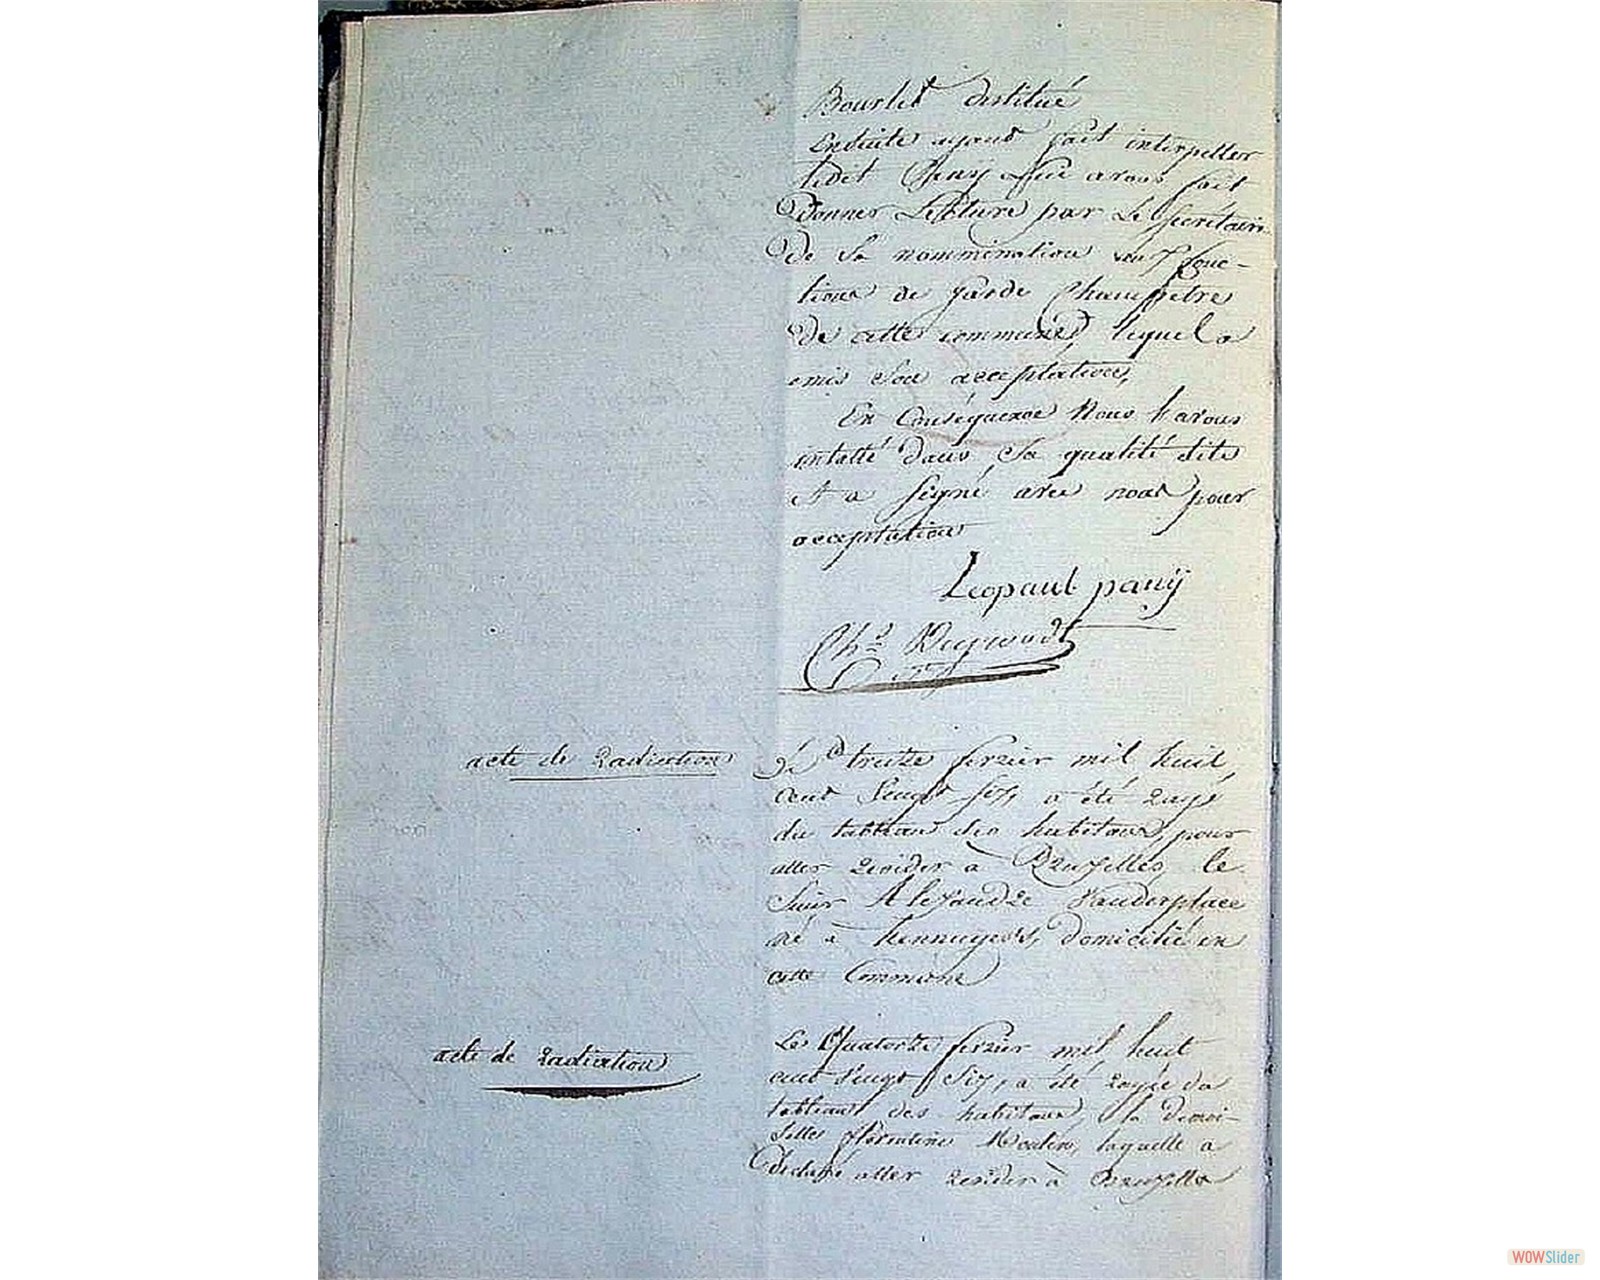 Bourlet destitué
Ensuite ayant fait interpeller
ledit Pany lui avons fait
Donner Lecture par Le Secrétaire
De Sa nommination aux fonc-
tions de Garde Champêtre
De cette commune, lequel a
emis Son acceptation,
En Conséquence Nous l'avons
intallé dans Sa qualité dite
et a Signé avec nous pour
acceptation
Leopaul pany
Chs
acte de radiation
Le treize fevrier mil huit
cent vingt six, a été rayé
du tableau des habitans, pour
aller resider à Bruxelles, le
Sieur Alexandre Vanderplace
né à hennuyers, Domicilié en
cette Commune
acte de radiation
Le Quatorze fevrier mil huit
cent vingt Six, a été rayée du
tableau des habitans, la demoi-
selle florentine Moulin, laquelle a
Déclaré aller resider à Bruxelles
WOWSlider